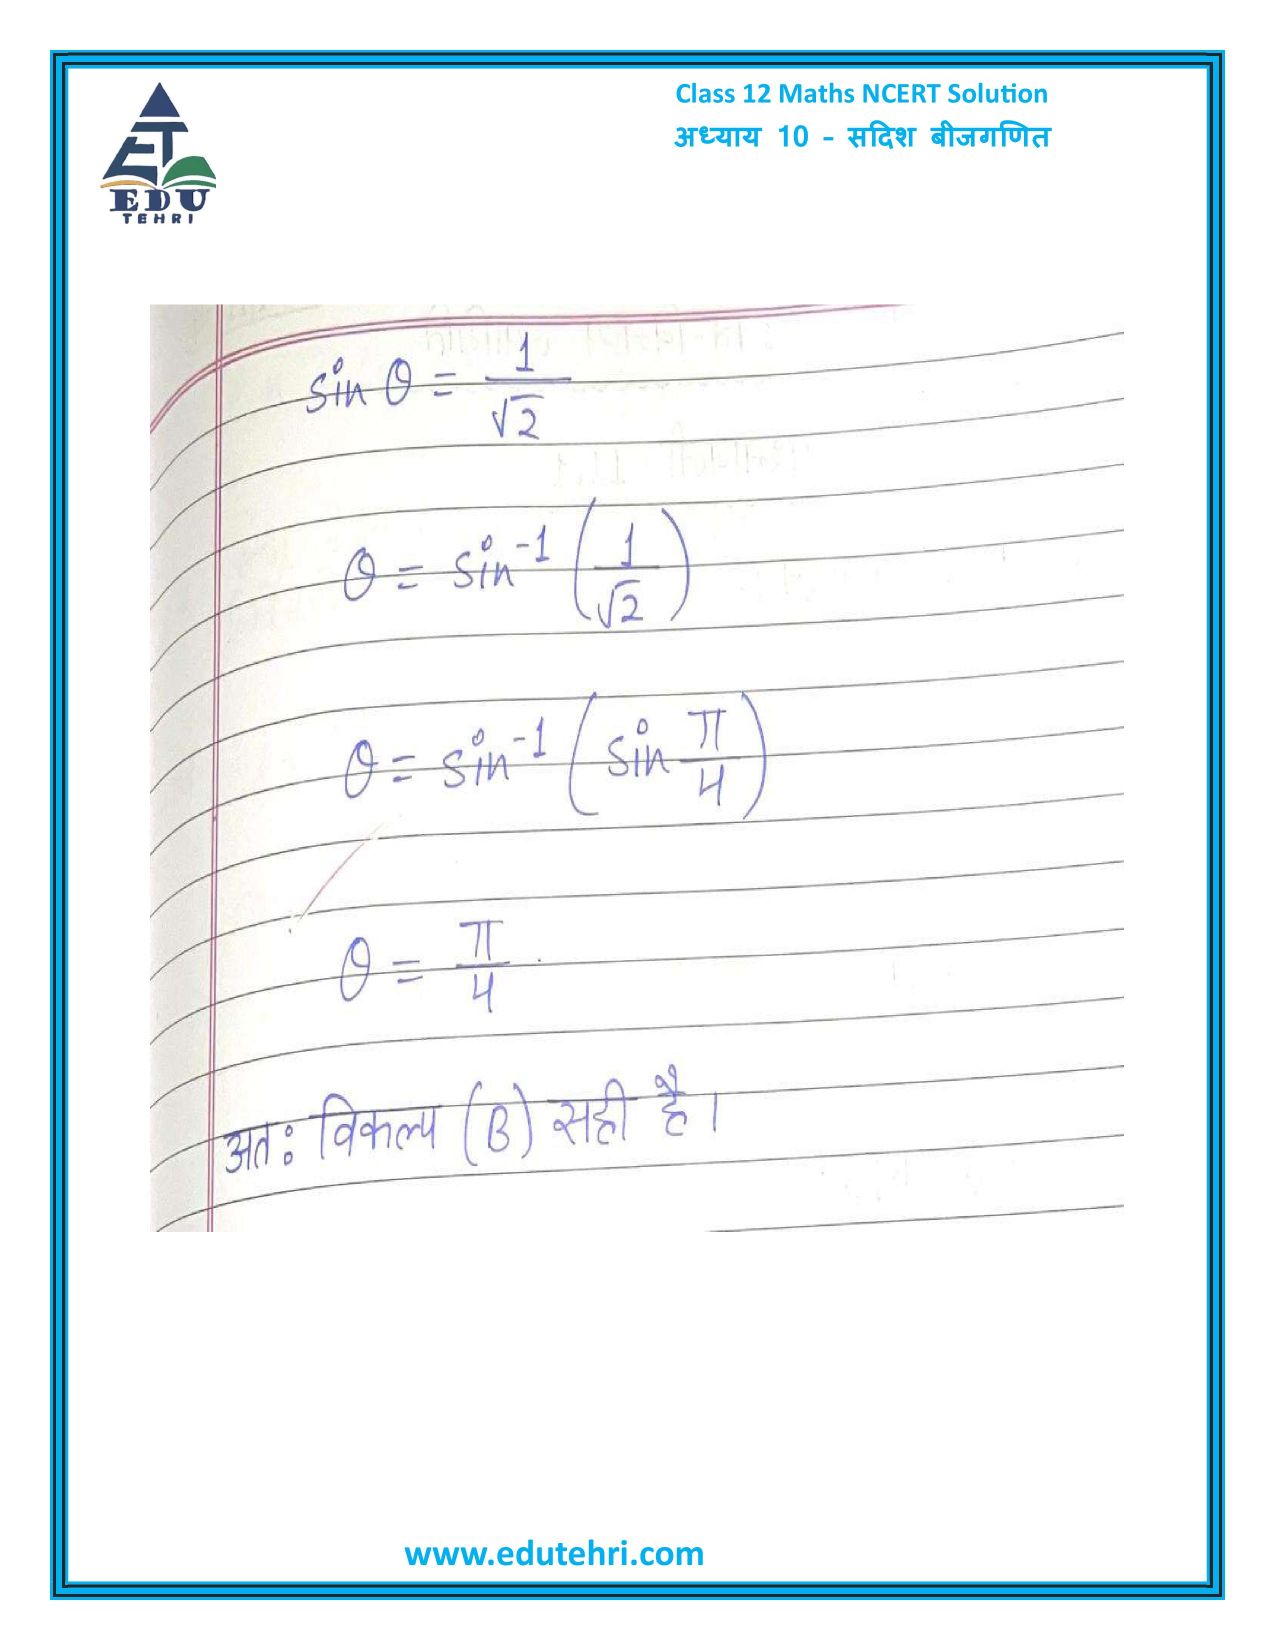 Class 12 Maths NCERT Solution
अध्याय 10 - सदिश बीजगणित
EDU
TEHRI
sin θ = 1/√2
θ = sin⁻¹ (1/√2)
θ = sin⁻¹ (sin π/4)
θ = π/4
अतः विकल्प (B) सही है।
www.edutehri.com